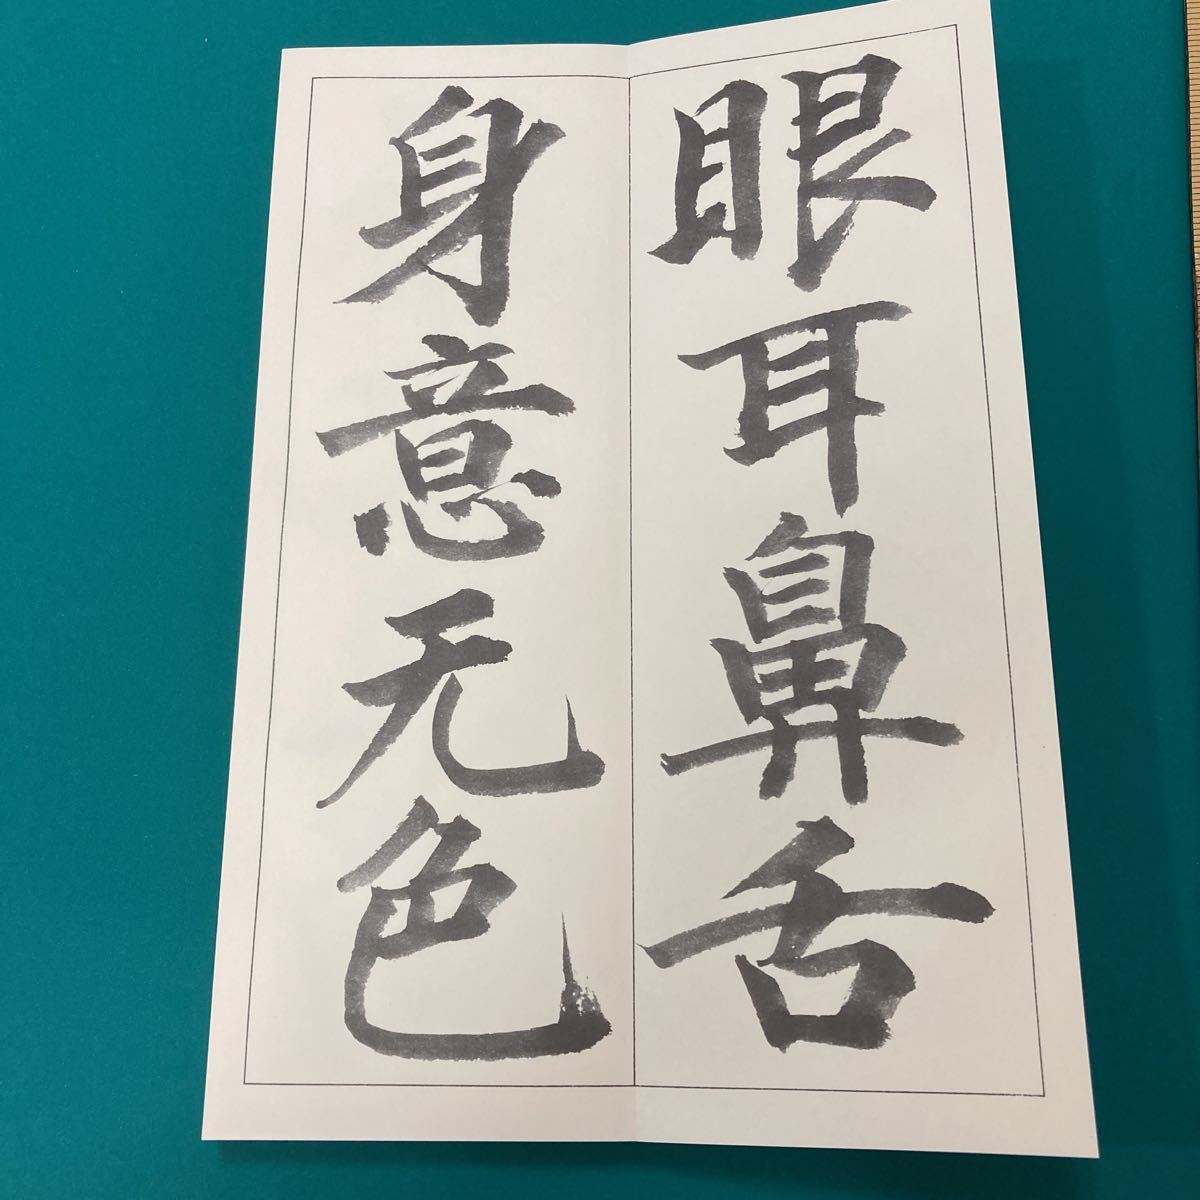 眼耳鼻舌
身意无色